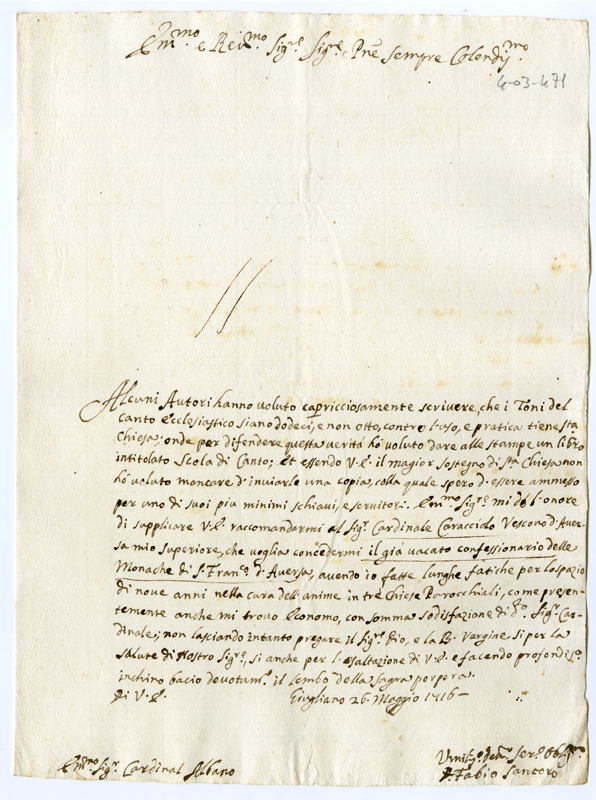 Em.mo e Rev.mo Sig.re Sig.re e Pñe sempre Colendis.mo
4-03-471
Alcuni Autori hanno voluto capricciosamente scrivere, che i Toni del
Canto Ecclesiastico siano dodeci, e non otto, contro l'uso, e pratica tiene S.ta
Chiesa; onde per difendere questa verità hò voluto dare alle stampe un libro
intitolato Scola di Canto; Et essendo V.E. il magior sostegno di S.ta Chiesa non
hò voluto mancare d'inviarle una copia, colla quale spero d'essere ammesso
per uno di suoi piu minimi schiavi, e servitori. Em.mo Sig.re mi dò l'onore
di supplicare V.E. raccomandarmi al Sig.r Cardinale Caracciolo Vescovo d'Aver-
sa mio superiore, che voglia concedermi il già vacato confessionario delle
Monache di S. Fran.co d'Aversa, avendo io fatte lunghe fatiche per lo spazio
di nove anni nella cura dell'anime in tre Chiese Parocchiali, come presen-
temente anche mi trovo Economo, con somma sodisfazione di d.to Sig.r Car-
dinale; non lasciando intanto pregare il Sig.re Dio, e la B. Vergine si per la
salute di Nostro Sig.re, si anche per l'esaltazione di V.E. e facendo profondis.o
inchino bacio devotam.e il lembo della sagra porpora.
Di V.E. Giugliano 26. Maggio 1716
Em.mo Sig.r Cardinal Albano
D. Fabio Santoro